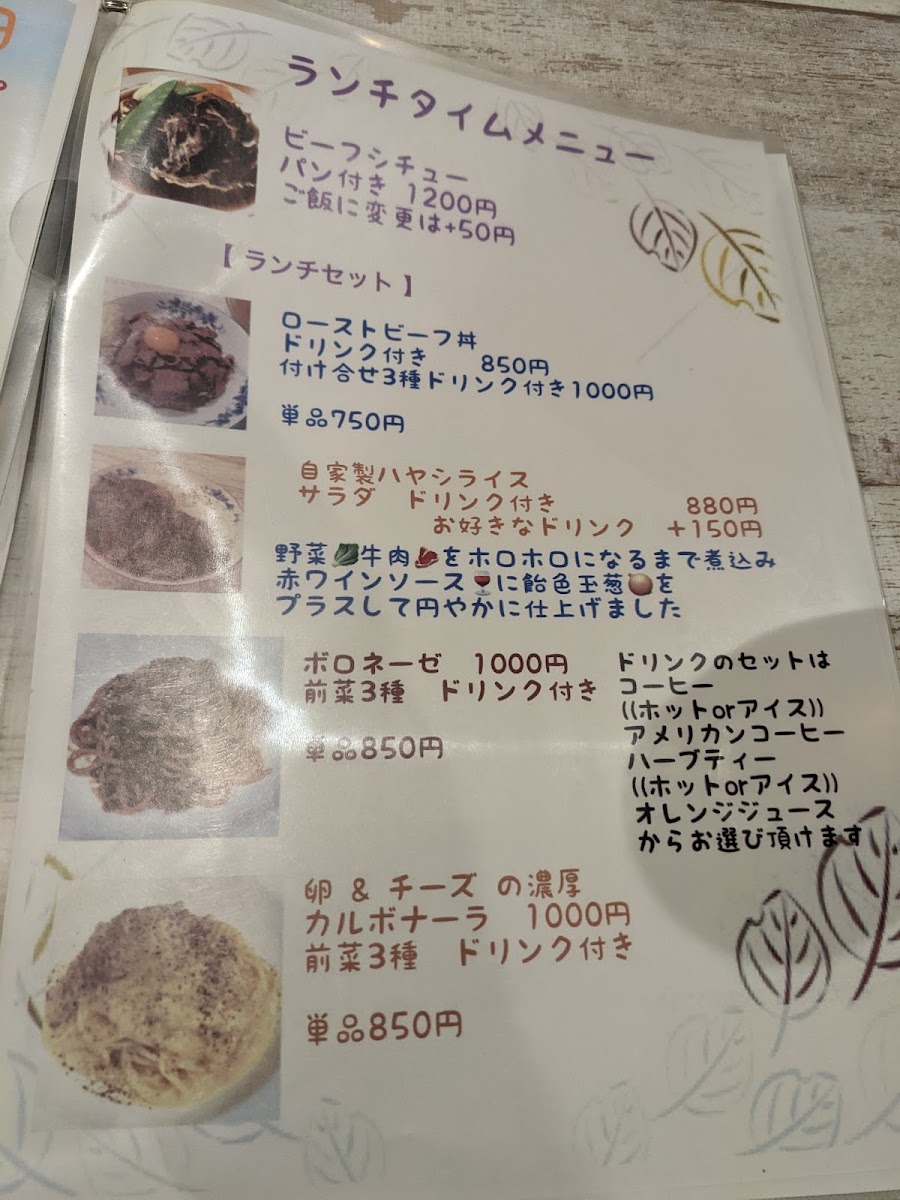 ランチタイムメニュー
ビーフシチュー
パン付き 1200円
ご飯に変更は+50円
【 ランチセット 】
ローストビーフ丼
ドリンク付き 850円
付け合せ3種ドリンク付き1000円
単品750円
自家製ハヤシライス
サラダ ドリンク付き 880円
お好きなドリンク +150円
野菜🥬牛肉🥩をホロホロになるまで煮込み
赤ワインソース🍷に飴色玉葱🧅を
プラスして円やかに仕上げました
ボロネーゼ 1000円
前菜3種 ドリンク付き
単品850円
ドリンクのセットは
コーヒー
((ホットorアイス))
アメリカンコーヒー
ハーブティー
((ホットorアイス))
オレンジジュース
からお選び頂けます
卵 & チーズ の濃厚
カルボナーラ 1000円
前菜3種 ドリンク付き
単品850円